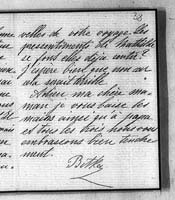 velles de votre voyage. les
presentiments de Mathilde
se sont elles déjà
J'espère bien que non
Adieu ma chère ma-
man je vous baise les
mains ainsi qu'à papa
et tous les trois nous vous
embrassons bien tendre-
ment.